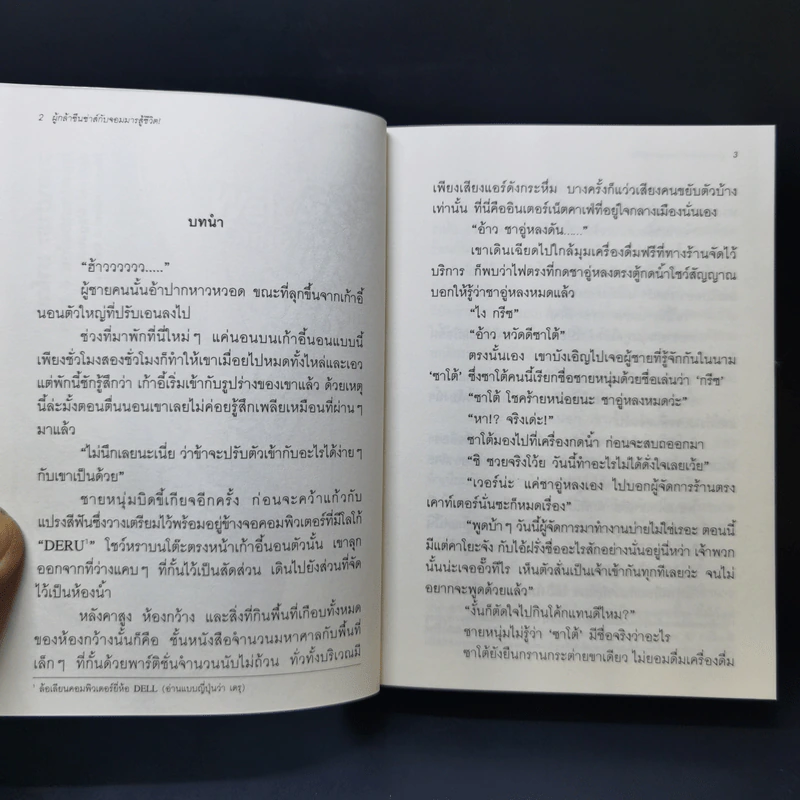 2 ผู้กล้าชินซาส์กับจอมมารสู้ชีวิต!
บทนำ
“ฮ้าวววววว.....”
ผู้ชายคนนั้นอ้าปากหาวหวอด ขณะที่ลุกขึ้นจากเก้าอี้
นอนตัวใหญ่ที่ปรับเอนลงไป
ช่วงที่มาพักที่นี่ใหม่ๆ แค่นอนบนเก้าอี้นอนแบบนี้
เพียงชั่วโมงสองชั่วโมงก็ทำให้เขาเมื่อยไปหมดทั้งไหล่และเอว
แต่พักนี้ชักรู้สึกว่า เก้าอี้เริ่มเข้ากับรูปร่างของเขาแล้ว ด้วยเหตุ
นี้ล่ะมั้งตอนตื่นนอนเขาเลยไม่ค่อยรู้สึกเพลียเหมือนที่ผ่านๆ
มาแล้ว
“ไม่นึกเลยนะเนี่ย ว่าข้าจะปรับตัวเข้ากับอะไรได้ง่ายๆ
กับเขาเป็นด้วย”
ชายหนุ่มบิดขี้เกียจอีกครั้ง ก่อนจะคว้าแก้วกับ
แปรงสีฟันซึ่งวางเตรียมไว้พร้อมอยู่ข้างจอคอมพิวเตอร์ที่มีโลโก้
“DERU¹” โชว์หราบนโต๊ะตรงหน้าเก้าอี้นอนตัวนั้น เขาลุก
ออกจากที่ว่างแคบๆ ที่กั้นไว้เป็นสัดส่วน เดินไปยังส่วนที่จัด
ไว้เป็นห้องน้ำ
หลังคาสูง ห้องกว้าง และสิ่งที่กินพื้นที่เกือบทั้งหมด
ของห้องกว้างนั้นก็คือ ชั้นหนังสือจำนวนมหาศาลกับพื้นที่
เล็กๆ ที่กั้นด้วยพาร์ติชั่นจำนวนนับไม่ถ้วน ทั่วทั้งบริเวณมี
¹ ล้อเลียนคอมพิวเตอร์ยี่ห้อ DELL (อ่านแบบญี่ปุ่นว่า เดรุ)
3
เพียงเสียงแอร์ดังกระหึ่ม บางครั้งก็แว่วเสียงคนขยับตัวบ้าง
เท่านั้น ที่นี่คืออินเตอร์เน็ตคาเฟ่ที่อยู่ใจกลางเมืองนั่นเอง
“อ้าว ชาอู่หลงดัน......”
เขาเดินเฉียดไปใกล้มุมเครื่องดื่มฟรีที่ทางร้านจัดไว้
บริการ ก็พบว่าไฟตรงที่กดชาอู่หลงตรงตู้กดน้ำโชว์สัญญาณ
บอกให้รู้ว่าชาอู่หลงหมดแล้ว
“ไง กรีซ”
“อ้าว หวัดดีซาโต้”
ตรงนั้นเอง เขาบังเอิญไปเจอผู้ชายที่รู้จักกันในนาม
‘ซาโต้’ ซึ่งซาโต้คนนี้เรียกชื่อชายหนุ่มด้วยชื่อเล่นว่า ‘กรีซ’
“ซาโต้ โชคร้ายหน่อยนะ ชาอู่หลงหมดว่ะ”
“หา!? จริงเด่ะ!”
ซาโต้มองไปที่เครื่องกดน้ำ ก่อนจะสบถออกมา
“ชิ ซวยจริงโว้ย วันนี้ทำอะไรไม่ได้ดั่งใจเลยเว้ย”
“เวอร์น่ะ แค่ชาอู่หลงเอง ไปบอกผู้จัดการร้านตรง
เคาท์เตอร์นั่นซะก็หมดเรื่อง”
“พูดบ้าๆ วันนี้ผู้จัดการมาทำงานบ่ายไม่ใช่เรอะ ตอนนี้
มีแต่คาโยะจัง กับไอ้ฝรั่งชื่ออะไรสักอย่างนั่นอยู่นี่หว่า เจ้าพวก
นั้นน่ะเจออั๊วทีไร เห็นตัวสั่นเป็นเจ้าเข้ากันทุกทีเลยว่ะ จนไม่
อยากจะพูดด้วยแล้ว”
“งั้นก็ตัดใจไปกินโค้กแทนดีไหม?”
ชายหนุ่มไม่รู้ว่า ‘ซาโต้’ มีชื่อจริงว่าอะไร
ซาโต้ยังยืนกรานกระต่ายขาเดียว ไม่ยอมดื่มเครื่องดื่ม